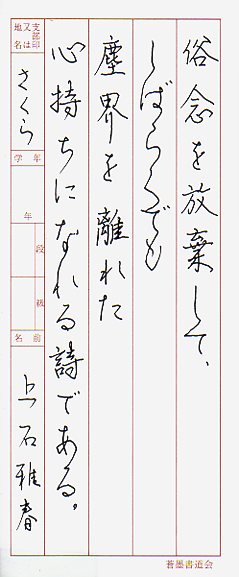 俗念を放棄して、
しばらくでも
塵界を離れた
心持ちになれる詩である。
支部印又は地名
さくら
学年
年
段
級
名前
上石雅春
蒼墨書道会